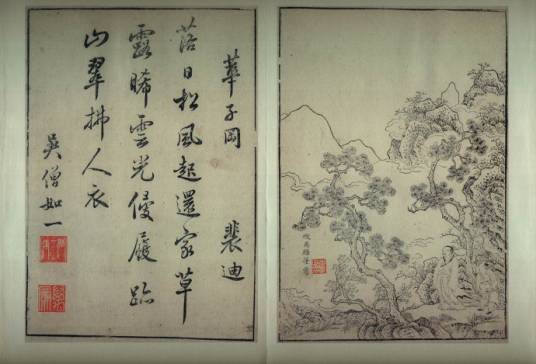 華子岡 裴迪
落日松風起還家草
露晞雲光侵履跡
山翠拂人衣
吳僧如一